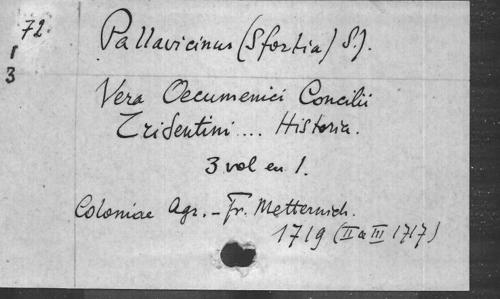 72
1
3
Pallavicinus (Sfortia) S.J.
Vera Oecumenici Concilii
Tridentini .... Historia.
3 vol en 1.
Coloniae Agr. - Fr. Metternich.
1719 (II a III 1717)